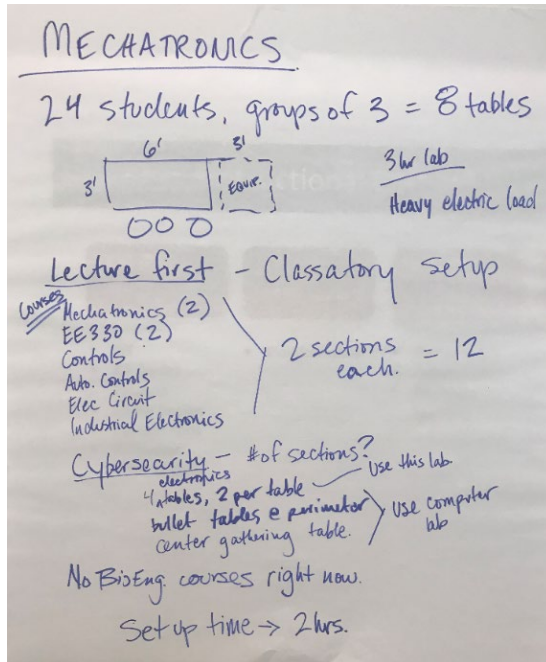 MECHATRONICS
24 students, groups of 3 = 8 tables
6' 3'
3' EQUIP.
3 hr lab
Heavy electric load
Lecture first - Classatory setup
Courses
Mechatronics (2)
EE330 (2)
Controls
Auto. Controls
Elec Circuit
Industrial Electronics
2 sections each. = 12
Cybersecurity - # of sections?
electronics
4 tables, 2 per table
Use this lab
bullet tables @ perimeter
center gathering table.
Use computer lab
No BioEng. courses right now.
Set up time → 2 hrs.